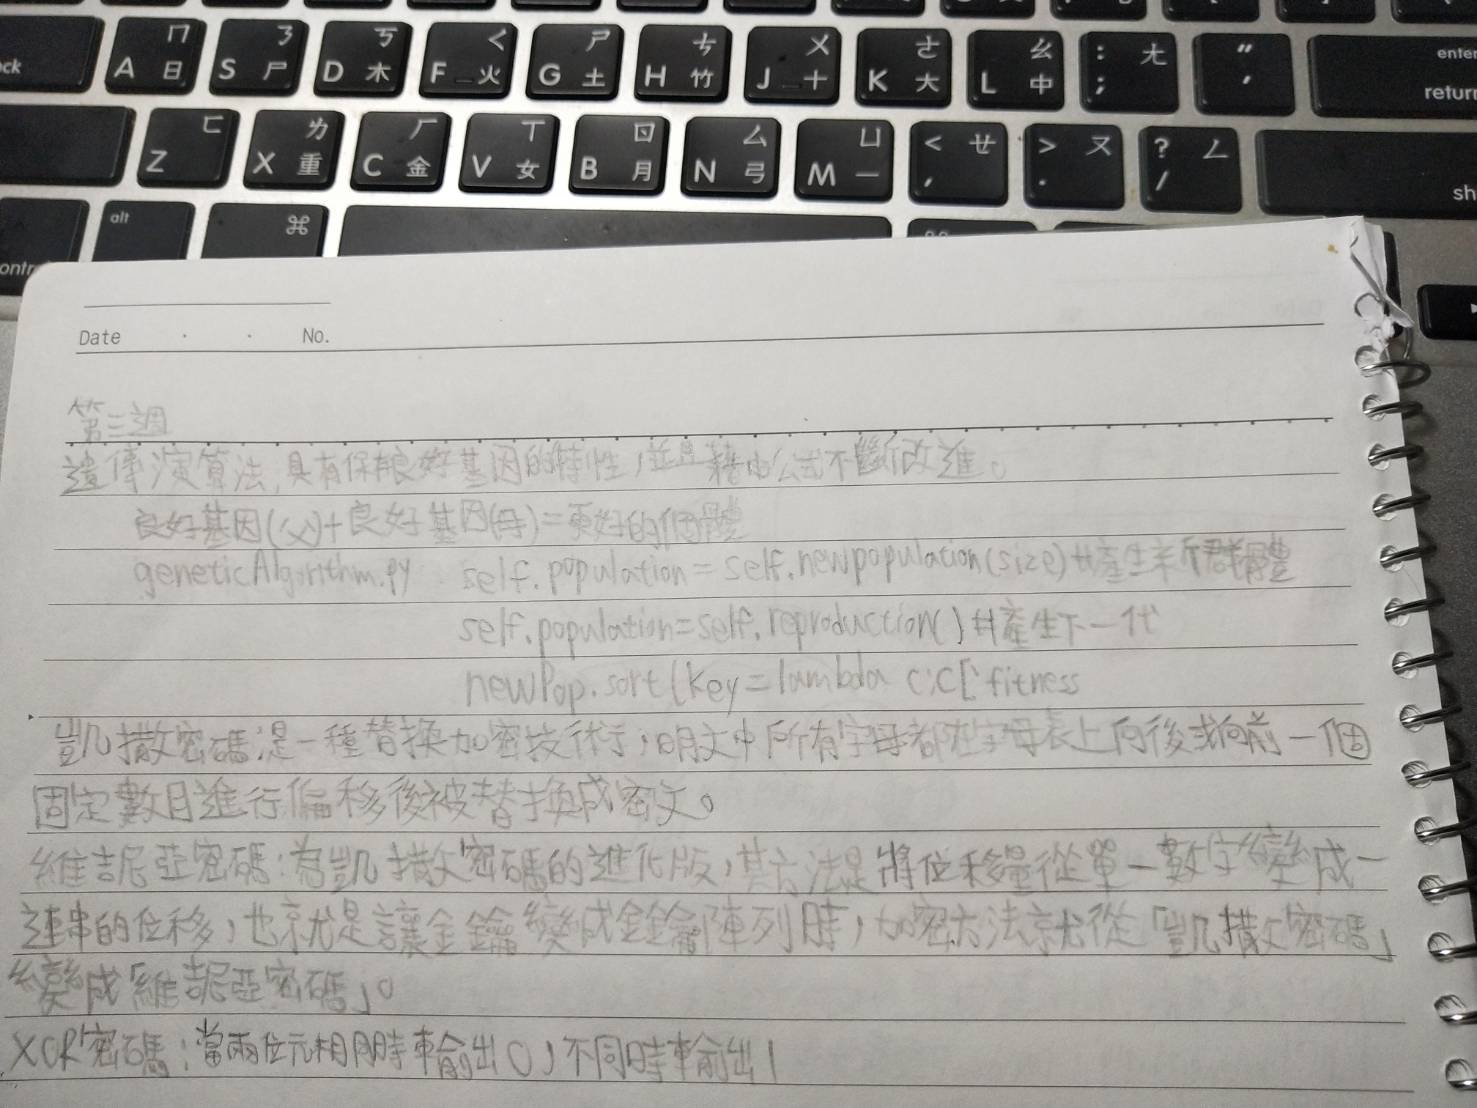 ck A 日 ㄇ S 尸 ㄋ D 木 ㄎ F 火 ㄑ G 土 ㄕ H 竹 ㄘ J 十 ㄨ K 大 ㄜ L 中 ㄠ : ; ㄤ " ' enter return
Z ㄈ X 重 ㄌ C 金 ㄏ V 女 ㄒ B 月 ㄖ N 弓 ㄙ M 一 ㄩ < , ㄝ > . ㄡ ? / ㄥ sh
contr alt ⌘
Date . . No.
第三週
遺傳演算法,具有保有良好基因的特性,並且藉由公式不斷改進。
良好基因(父)+良好基因(母)=更好的個體
geneticAlgorithm.py self.population=self.newpopulation(size)#產生新群體
self.population=self.reproduction()#產生下一代
newPop.sort(key=lambda c:c['fitness
凱撒密碼:是一種替換加密技術,明文中所有字母都在字母表上向後或向前一個
固定數目進行偏移後被替換成密文。
維吉尼亞密碼:為凱撒密碼的進化版,其方法是將位移量從單一數字變成一
連串的位移,也就是讓金鑰變成金鑰陣列時,加密方法就從「凱撒密碼」
變成「維吉尼亞密碼」。
XOR密碼:當兩位元相同時輸出0,不同時輸出1